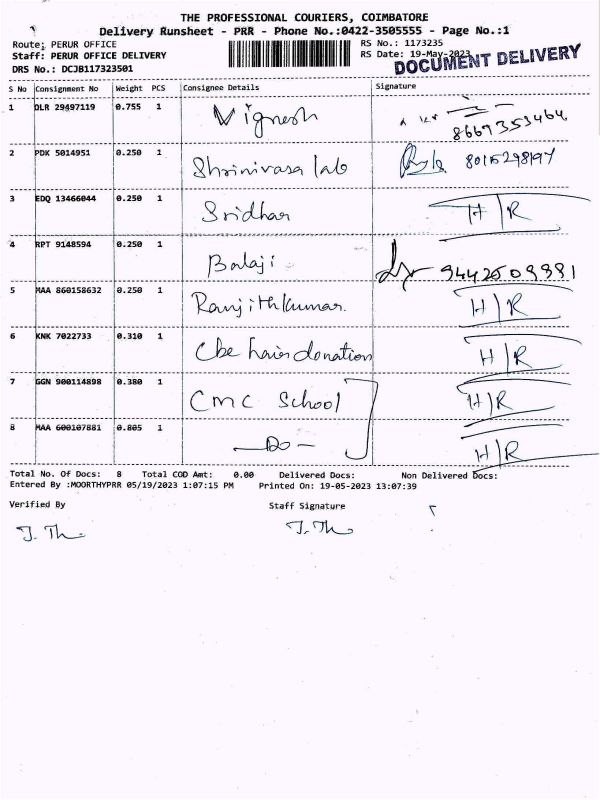 THE PROFESSIONAL COURIERS, COIMBATORE
Delivery Runsheet - PRR - Phone No.:0422-3505555 - Page No.:1
Route: PERUR OFFICE RS No.: 1173235
Staff: PERUR OFFICE DELIVERY RS Date: 19-May-2023
DOCUMENT DELIVERY
DRS No.: DCJB117323501
S No Consignment No Weight PCS Consignee Details Signature
1 DLR 29497119 0.755 1 Vignesh 8669353464
2 PDK 5014951 0.250 1 Shrinivasa lab 8015298197
3 EDQ 13466044 0.250 1 Sridhar H/R
4 RPT 9148594 0.250 1 Balaji 9442509991
5 MAA 860158632 0.250 1 Ranjithkumar. H/R
6 KNK 7022733 0.310 1 Cbe hair donation H/R
7 GGN 900114898 0.380 1 CMC School H/R
8 MAA 600107881 0.805 1 —Do— H/R
Total No. Of Docs: 8 Total COD Amt: 0.00 Delivered Docs: Non Delivered Docs:
Entered By :MOORTHYPRR 05/19/2023 1:07:15 PM Printed On: 19-05-2023 13:07:39
Verified By Staff Signature